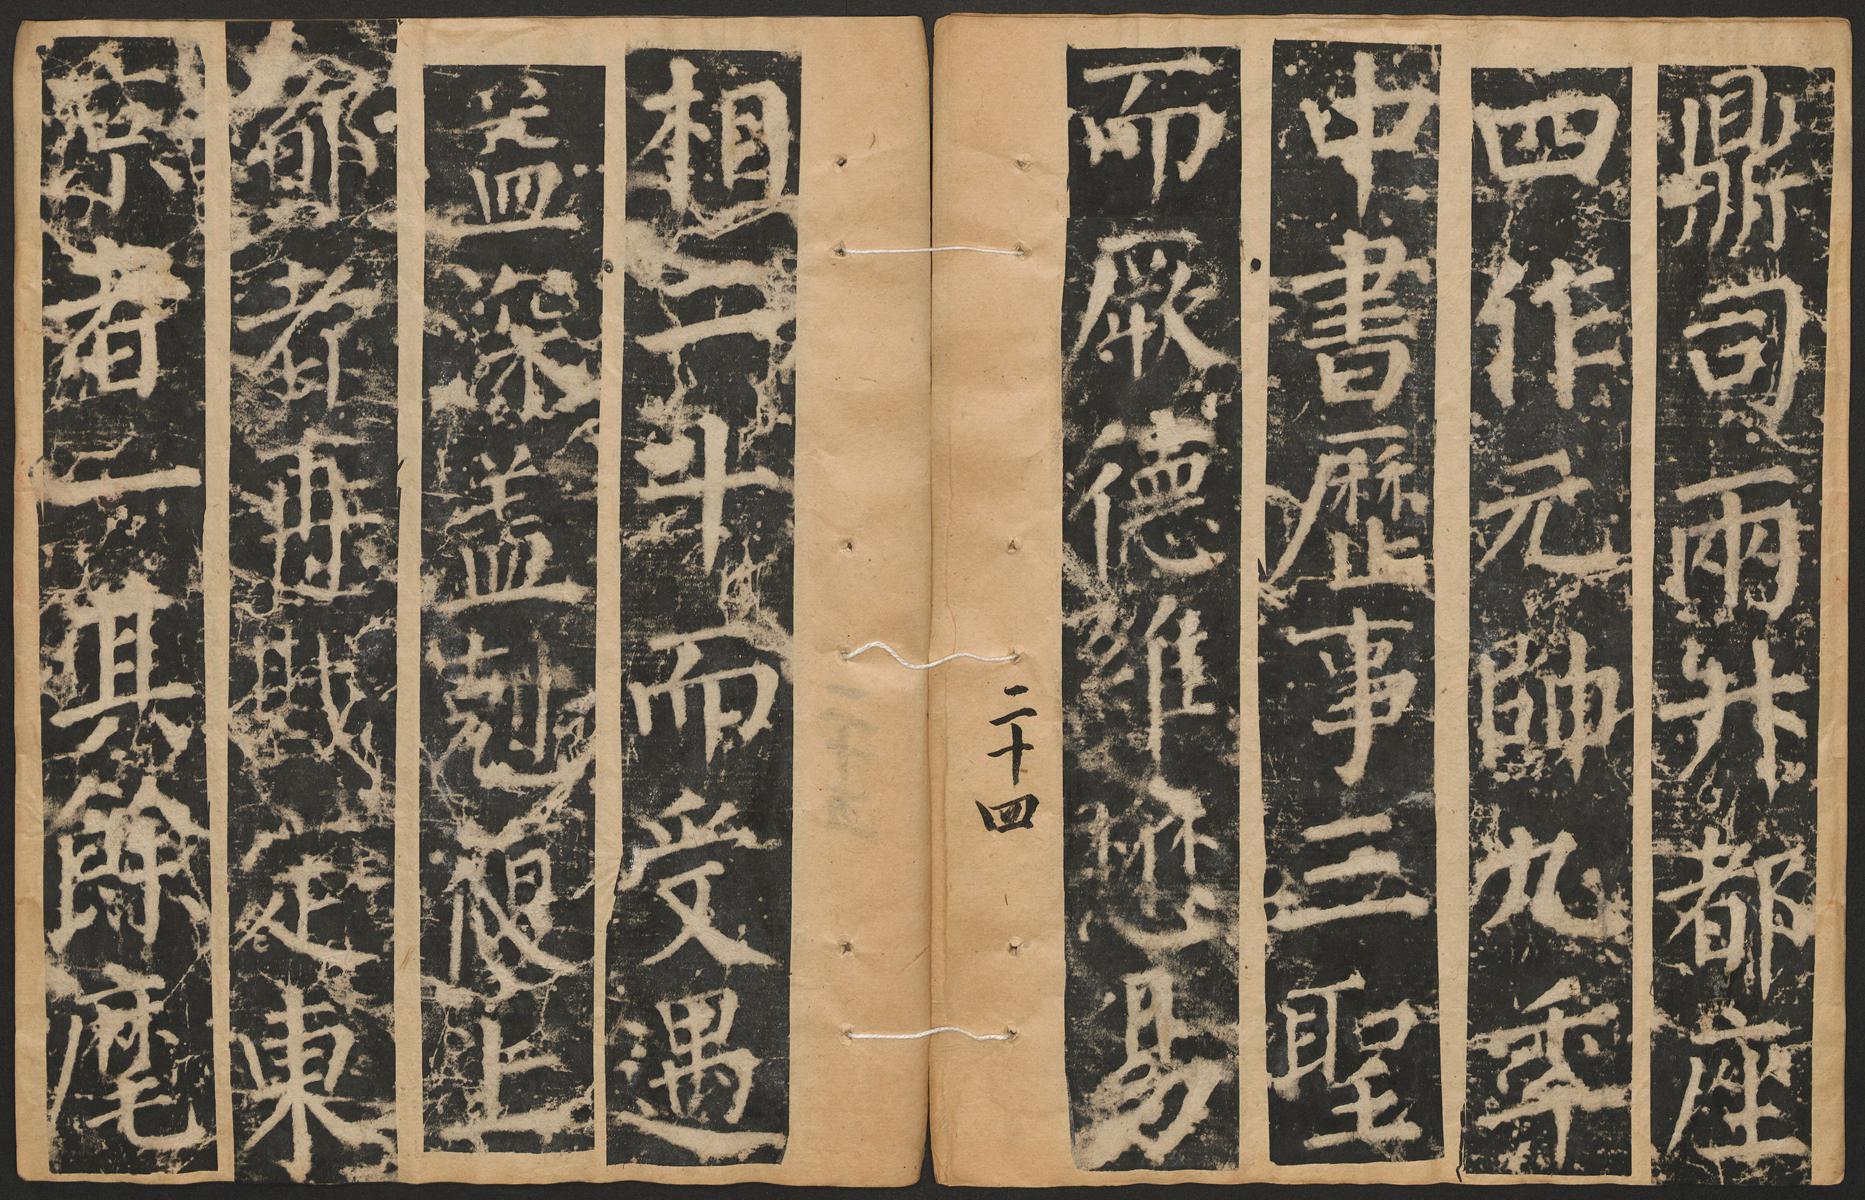 鼎司兩升都座
四作元帥九年
中書歷事三聖
而厥德維懋易
二十四
相二十而受遇
益深蓋剋復上
都者再戡定東
京者一其餘麾